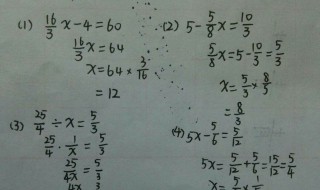 (1) 16/3 x - 4 = 60
16/3 x = 64
x = 64 × 3/16
= 12
(2) 5 - 5/8 x = 10/3
5/8 x = 5 - 10/3 = 5/3
x = 5/3 × 8/5
= 8/3
(3) 25/4 ÷ x = 5/3
25/4 · 1/x = 5/3
25/4x = 5/3
4x 3
(4) 5x - 5/6 = 5/12
5x = 5/12 + 5/6 = 15/12 = 5/4
x = 5/4 × 1